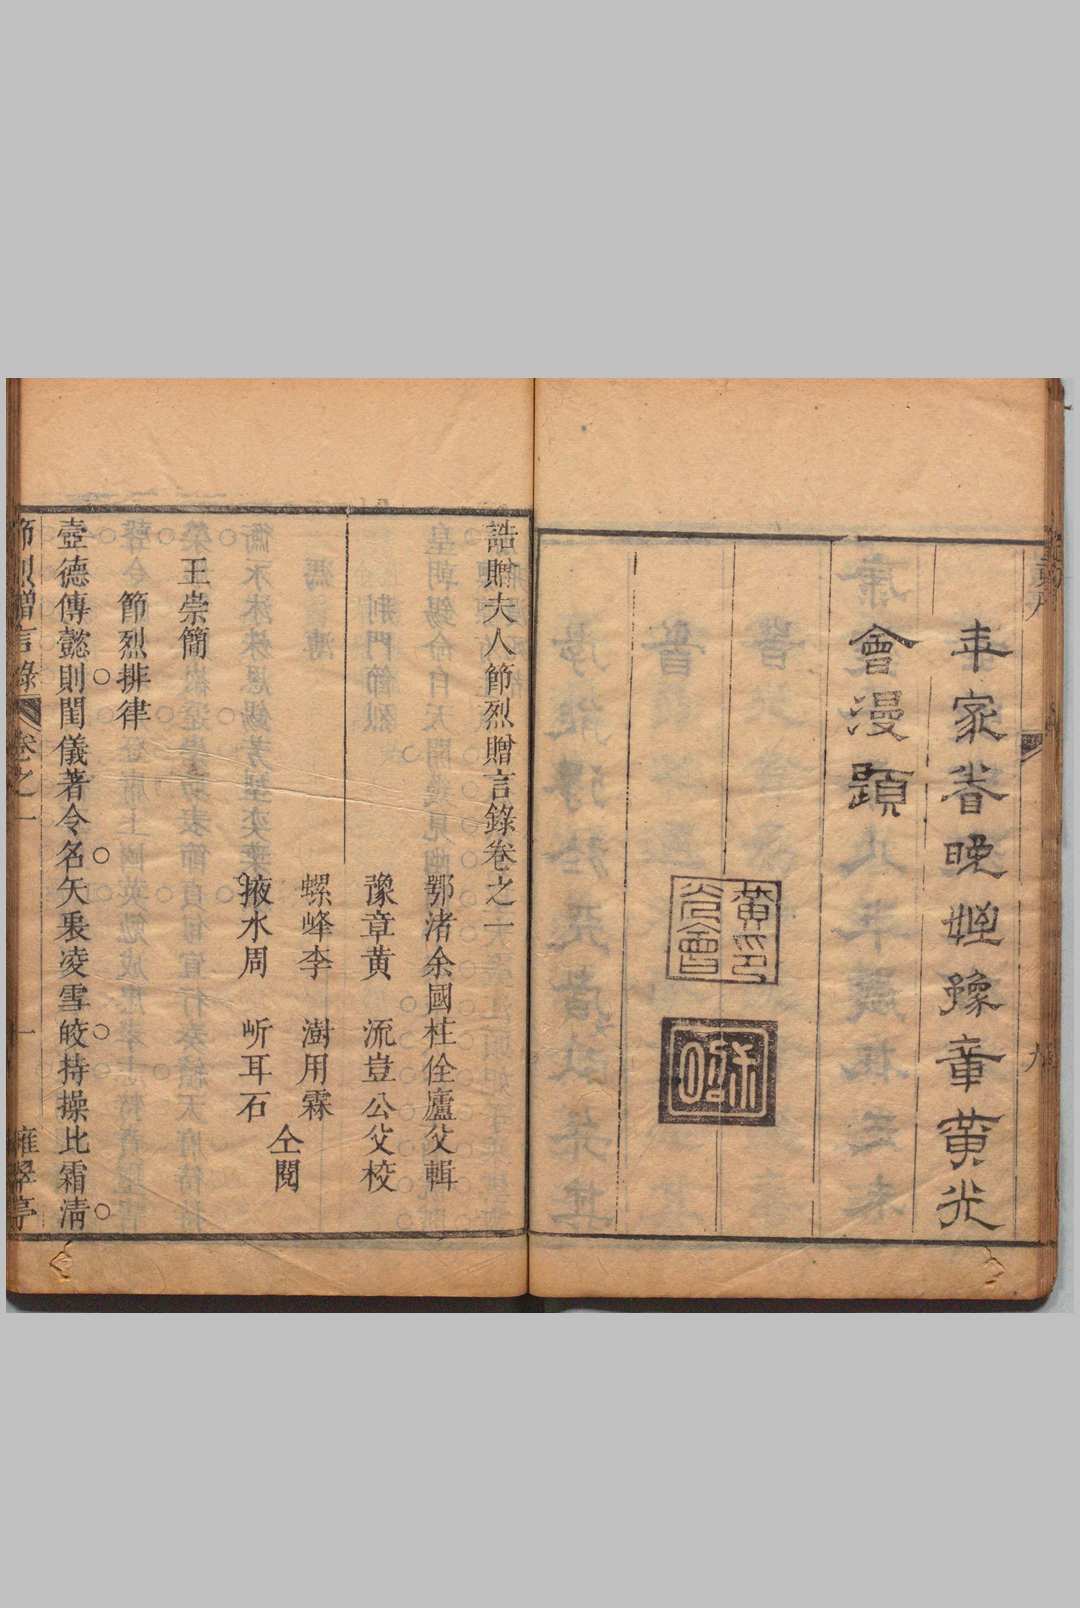 年家眷晚姪豫章黃光
會漫題
黃印
光會
誥贈夫人節烈贈言錄卷之一
鄂渚余國柱佺廬父輯
豫章黃 流豈公父校
螺峰李 澍用霖
掖水周 岓耳石
仝閱
王崇簡
節烈排律
壼德傳懿則閨儀著令名矢褁凌雪皎持操比霜清
節烈贈言錄 卷之一 一 雍翠亭